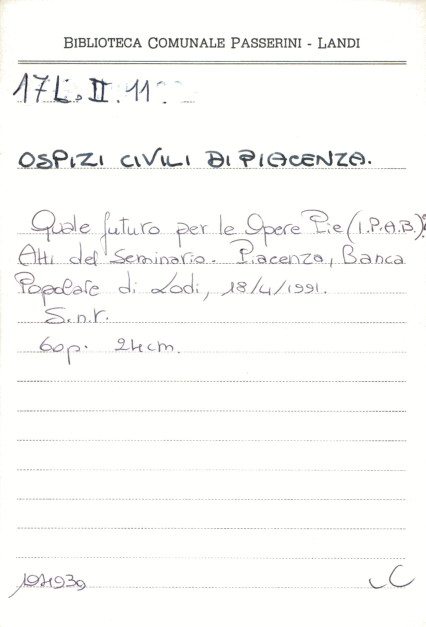 BIBLIOTECA COMUNALE PASSERINI - LANDI
17L.II.11
OSPIZI CIVILI DI PIACENZA.
Quale futuro per le Opere Pie (I.P.A.B.)?
Atti del Seminario. Piacenza, Banca
Popolare di Lodi, 18/4/1991.
S.n.t.
60p. 24cm.